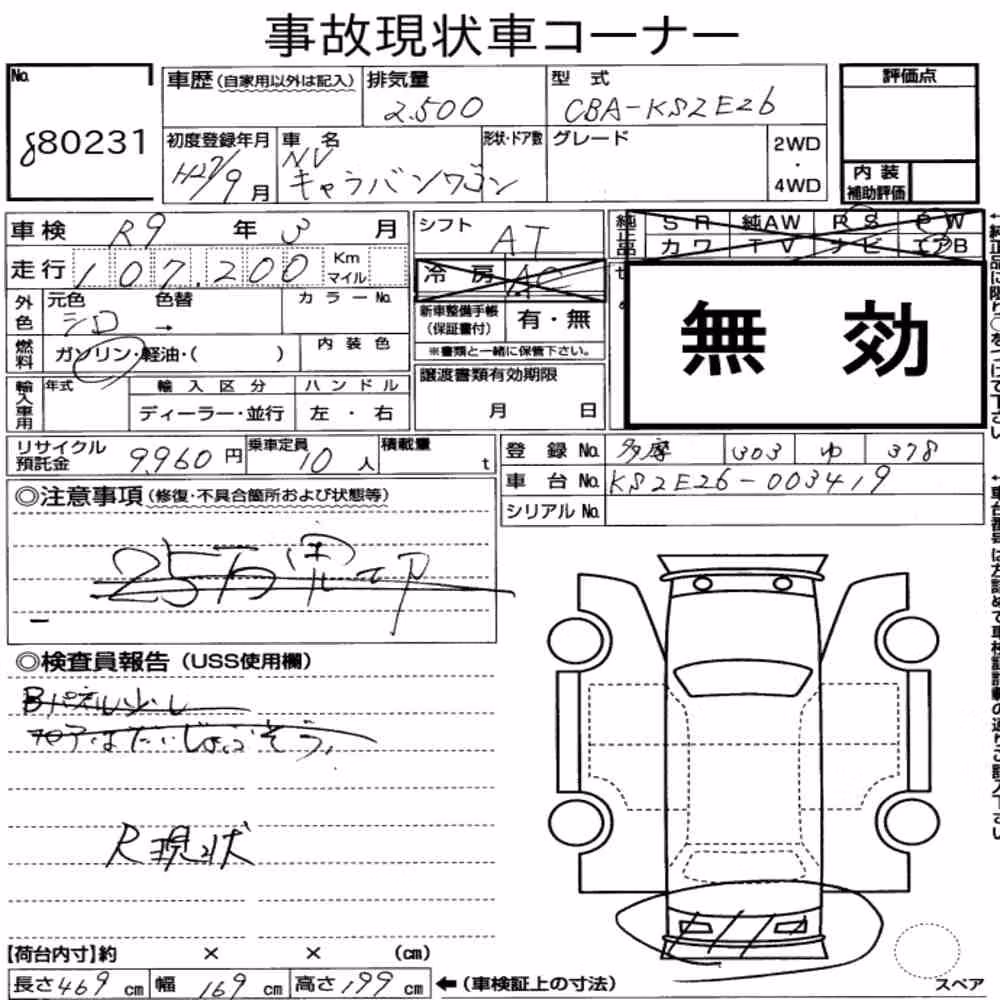 事故現状車コーナー
No. 80231
車歴(自家用以外は記入) 排気量 2.500 型式 CBA-KS2E26
初度登録年月 H27/9月 車名 NV キャラバンワゴン 形状・ドア数 グレード 2WD・4WD
評価点
内装補助評価
車検 R9年3月
走行 107.200 Km マイル
外色 元色 シロ 色替 → カラーNo.
燃料 ガソリン・軽油・( ) 内装色
輸入車用 年式 輸入区分 ハンドル
ディーラー・並行 左・右
シフト AT
冷房 AC
新車整備手帳(保証書付) 有・無
※書類と一緒に保管下さい。
譲渡書類有効期限
月 日
純正品 SR 純AW RS PW
カワ TV ナビ エアB
無効
リサイクル預託金 9,960円 乗車定員 10人 積載量 t
登録No. 多摩 303 ゆ 378
車台No. KS2E26-003419
シリアルNo.
◎注意事項(修復・不具合箇所および状態等)
25万
◎検査員報告(USS使用欄)
Bパネル少し
はだいじょうぶそう。
R現状
【荷台内寸】約 × × (cm)
長さ469cm 幅169cm 高さ199cm ←(車検証上の寸法)
スペア